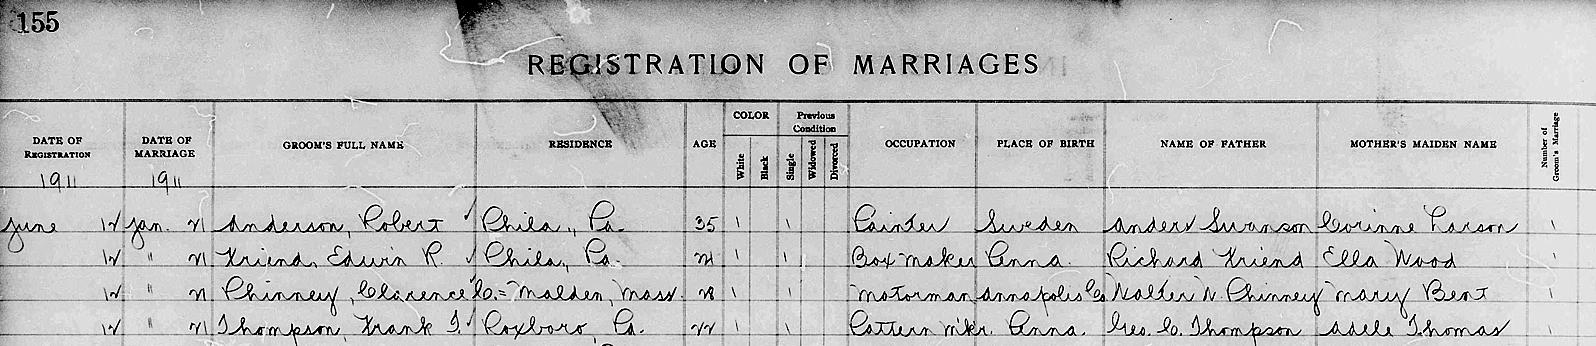 155
REGISTRATION OF MARRIAGES
DATE OF REGISTRATION DATE OF MARRIAGE GROOM'S FULL NAME RESIDENCE AGE COLOR White Black Previous Condition Single Widowed Divorced OCCUPATION PLACE OF BIRTH NAME OF FATHER MOTHER'S MAIDEN NAME Number of Groom's Marriage
1911 1911
June 12 Jan. 21 Anderson, Robert Phila., Pa. 35 1 1 Painter Sweden Anders Swanson Corinne Larson 1
12 " 21 Friend, Edwin R. Phila., Pa. 21 1 1 Box maker Penna. Richard Friend Ella Wood 1
12 " 21 Phinney, Clarence C. = Malden, Mass. 28 1 1 Motorman Annapolis Co Walter N. Phinney Mary Bent 1
12 " 21 Thompson, Frank T. Roxboro, Pa. 22 1 1 Pattern mkr. Penna. Geo. C. Thompson Adele Thomas 1